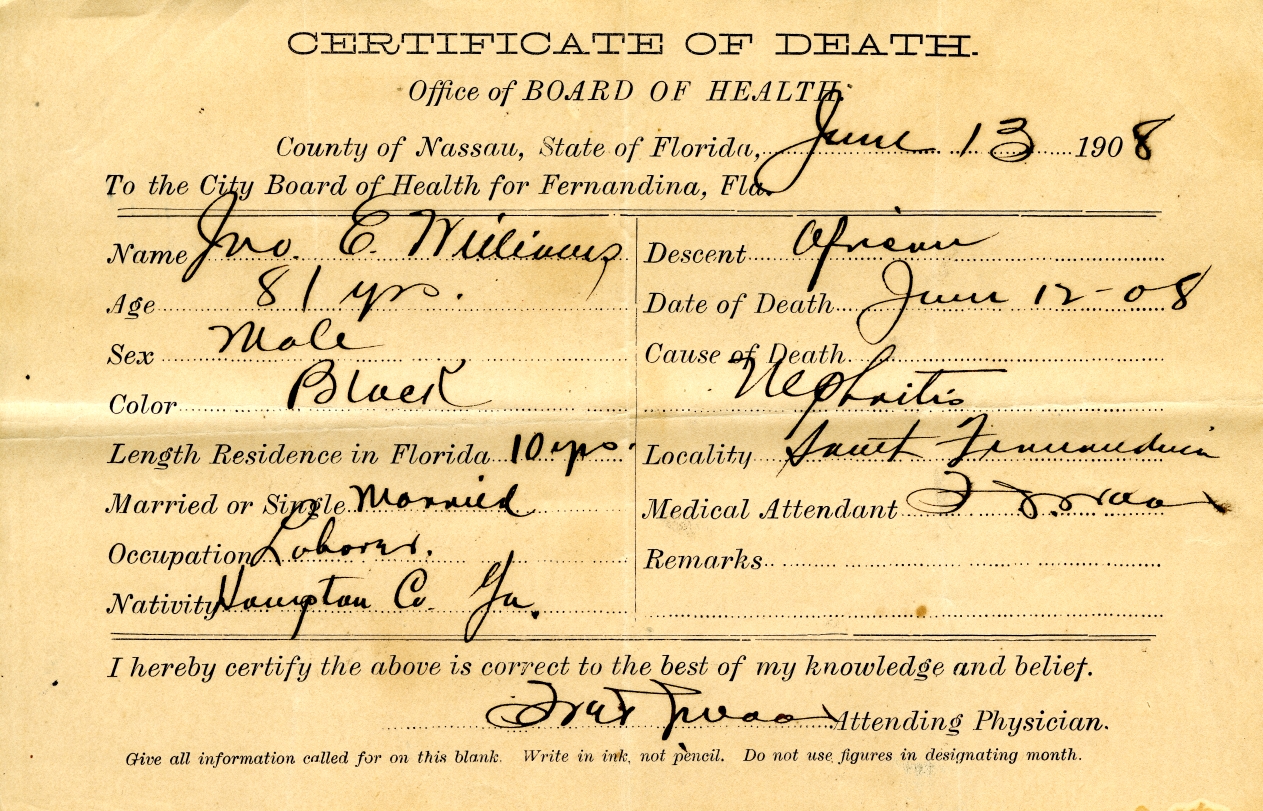 CERTIFICATE OF DEATH.
Office of BOARD OF HEALTH.
County of Nassau, State of Florida, June 13 1908
To the City Board of Health for Fernandina, Fla.
Name Jno. E. Williams
Descent African
Age 81 yrs.
Date of Death June 12-08
Sex Male
Cause of Death
Color Black
Nephritis
Length Residence in Florida 10 yrs.
Locality Fernandina
Married or Single Married
Medical Attendant
Occupation Laborer.
Remarks
Nativity Hampton Co. Ga.
I hereby certify the above is correct to the best of my knowledge and belief.
Attending Physician.
Give all information called for on this blank. Write in ink, not pencil. Do not use figures in designating month.